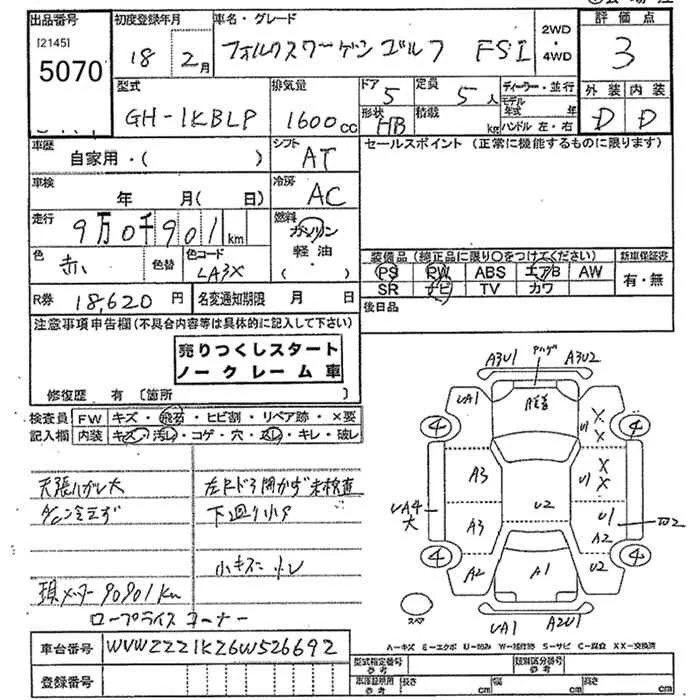 出品番号 初度登録年月 車名・グレード 評価点
[2145]
5070 18 2月 フォルクスワーゲンゴルフ FSI 2WD・4WD 3
型式 排気量 ドア 定員 ディーラー・並行 外装 内装
GH-1KBLP 1600cc 5 5人 モデル年式 年 D D
形状 HB 積載 kg ハンドル 左・右
車歴 自家用・( ) シフト AT セールスポイント(正常に機能するものに限ります)
車検 年 月( 日) 冷房 AC
走行 9万0千901km 燃料 ガソリン
軽油
・( )
色 赤 色替 色コード LA3X 装備品(純正品に限り○をつけてください) 新車保証書
PS PW ABS エアB AW 有・無
SR ナビ TV カワ
R券 18,620円 名変通知期限 月 日 後日品
注意事項申告欄(不具合内容等は具体的に記入して下さい)
売りつくしスタート
ノークレーム車
修復歴 有〔箇所 〕
検査員 FW キズ・飛石・ヒビ割・リペア跡・×要
記入欄 内装 キズ・汚レ・コゲ・穴・スレ・キレ・破レ
天張ハガレ大 左Fドア開かず 未検査
A/C冷えず 下廻り小サ
小キズ
現メーター90901km
ロープライスコーナー
A3U1 A3U2
UA1 U1 X X
4 4
A3 U1 X X
UA4 大 U2 U1
A3 A2
4 4
A2 A1 U2
スペア UA1 A2U1
A-キズ E-エクボ U-凹み W-補修跡 S-サビ C-腐食 XX-交換済
車台番号 WVWZZZ1KZ6W526692
型式指定番号 参考 類別区分番号 参考
登録番号 車庫証明用 参考 長さ cm 幅 cm 高さ cm